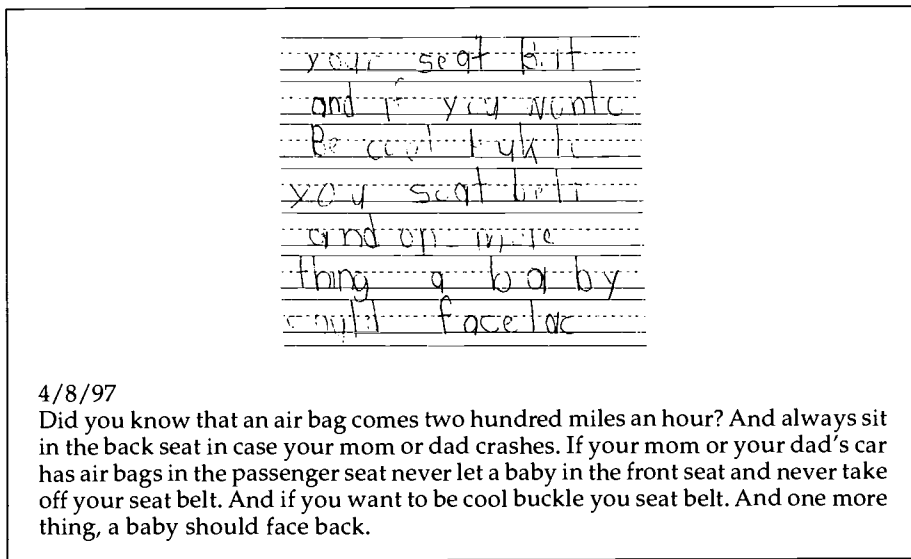 your seat belt
and if you wantc
Be cool bukle
you seat belt
and on more
thing a baby
could face bac
4/8/97
Did you know that an air bag comes two hundred miles an hour? And always sit
in the back seat in case your mom or dad crashes. If your mom or your dad's car
has air bags in the passenger seat never let a baby in the front seat and never take
off your seat belt. And if you want to be cool buckle you seat belt. And one more
thing, a baby should face back.